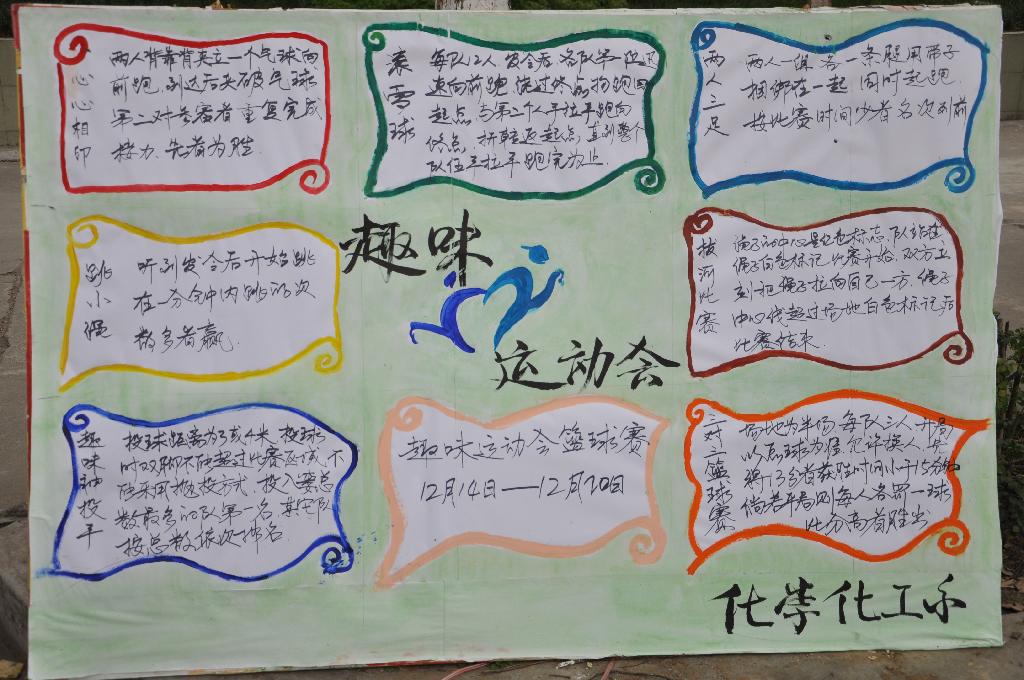 心心相印
两人背靠背夹立一个气球向
前跑,到达后夹破气球
第二对参赛者重复完成
接力.先者为胜.
滚雪球
每队人发令后各队第一位迅
速向前跑绕过终点物跑回
起点与第二个人手拉手跑向
终点,折转返起点,直到整个
队伍手拉手跑完为止.
两人三足
两人一组各一条腿用带子
捆绑在一起 同时起跑
按比赛时间少者名次列前
跳小绳
听到发令后开始跳
在一分钟内跳的次
数多者赢.
趣味
运动会
拔河比赛
绳子的中心是红色标志.队站在
绳子白色标记.比赛开始,双方立
刻把绳子拉向自己一方.绳子
中心线超过场地白色标记后
比赛结束.
趣味神投手
投球距离为3或4米,投球
时双脚不能超过比赛区域,不
能采用抛投方式.投入篓总
数最多的队第一名.其它队
按总数依次排名.
趣味运动会篮球赛
12月14日——12月20日
三对三篮球赛
场地为半场,每队三人,
以点球为准允许换人,先
得13分者获胜时间小于15分钟
倘若平局则每人各罚一球
比分高者胜出
化学化工系